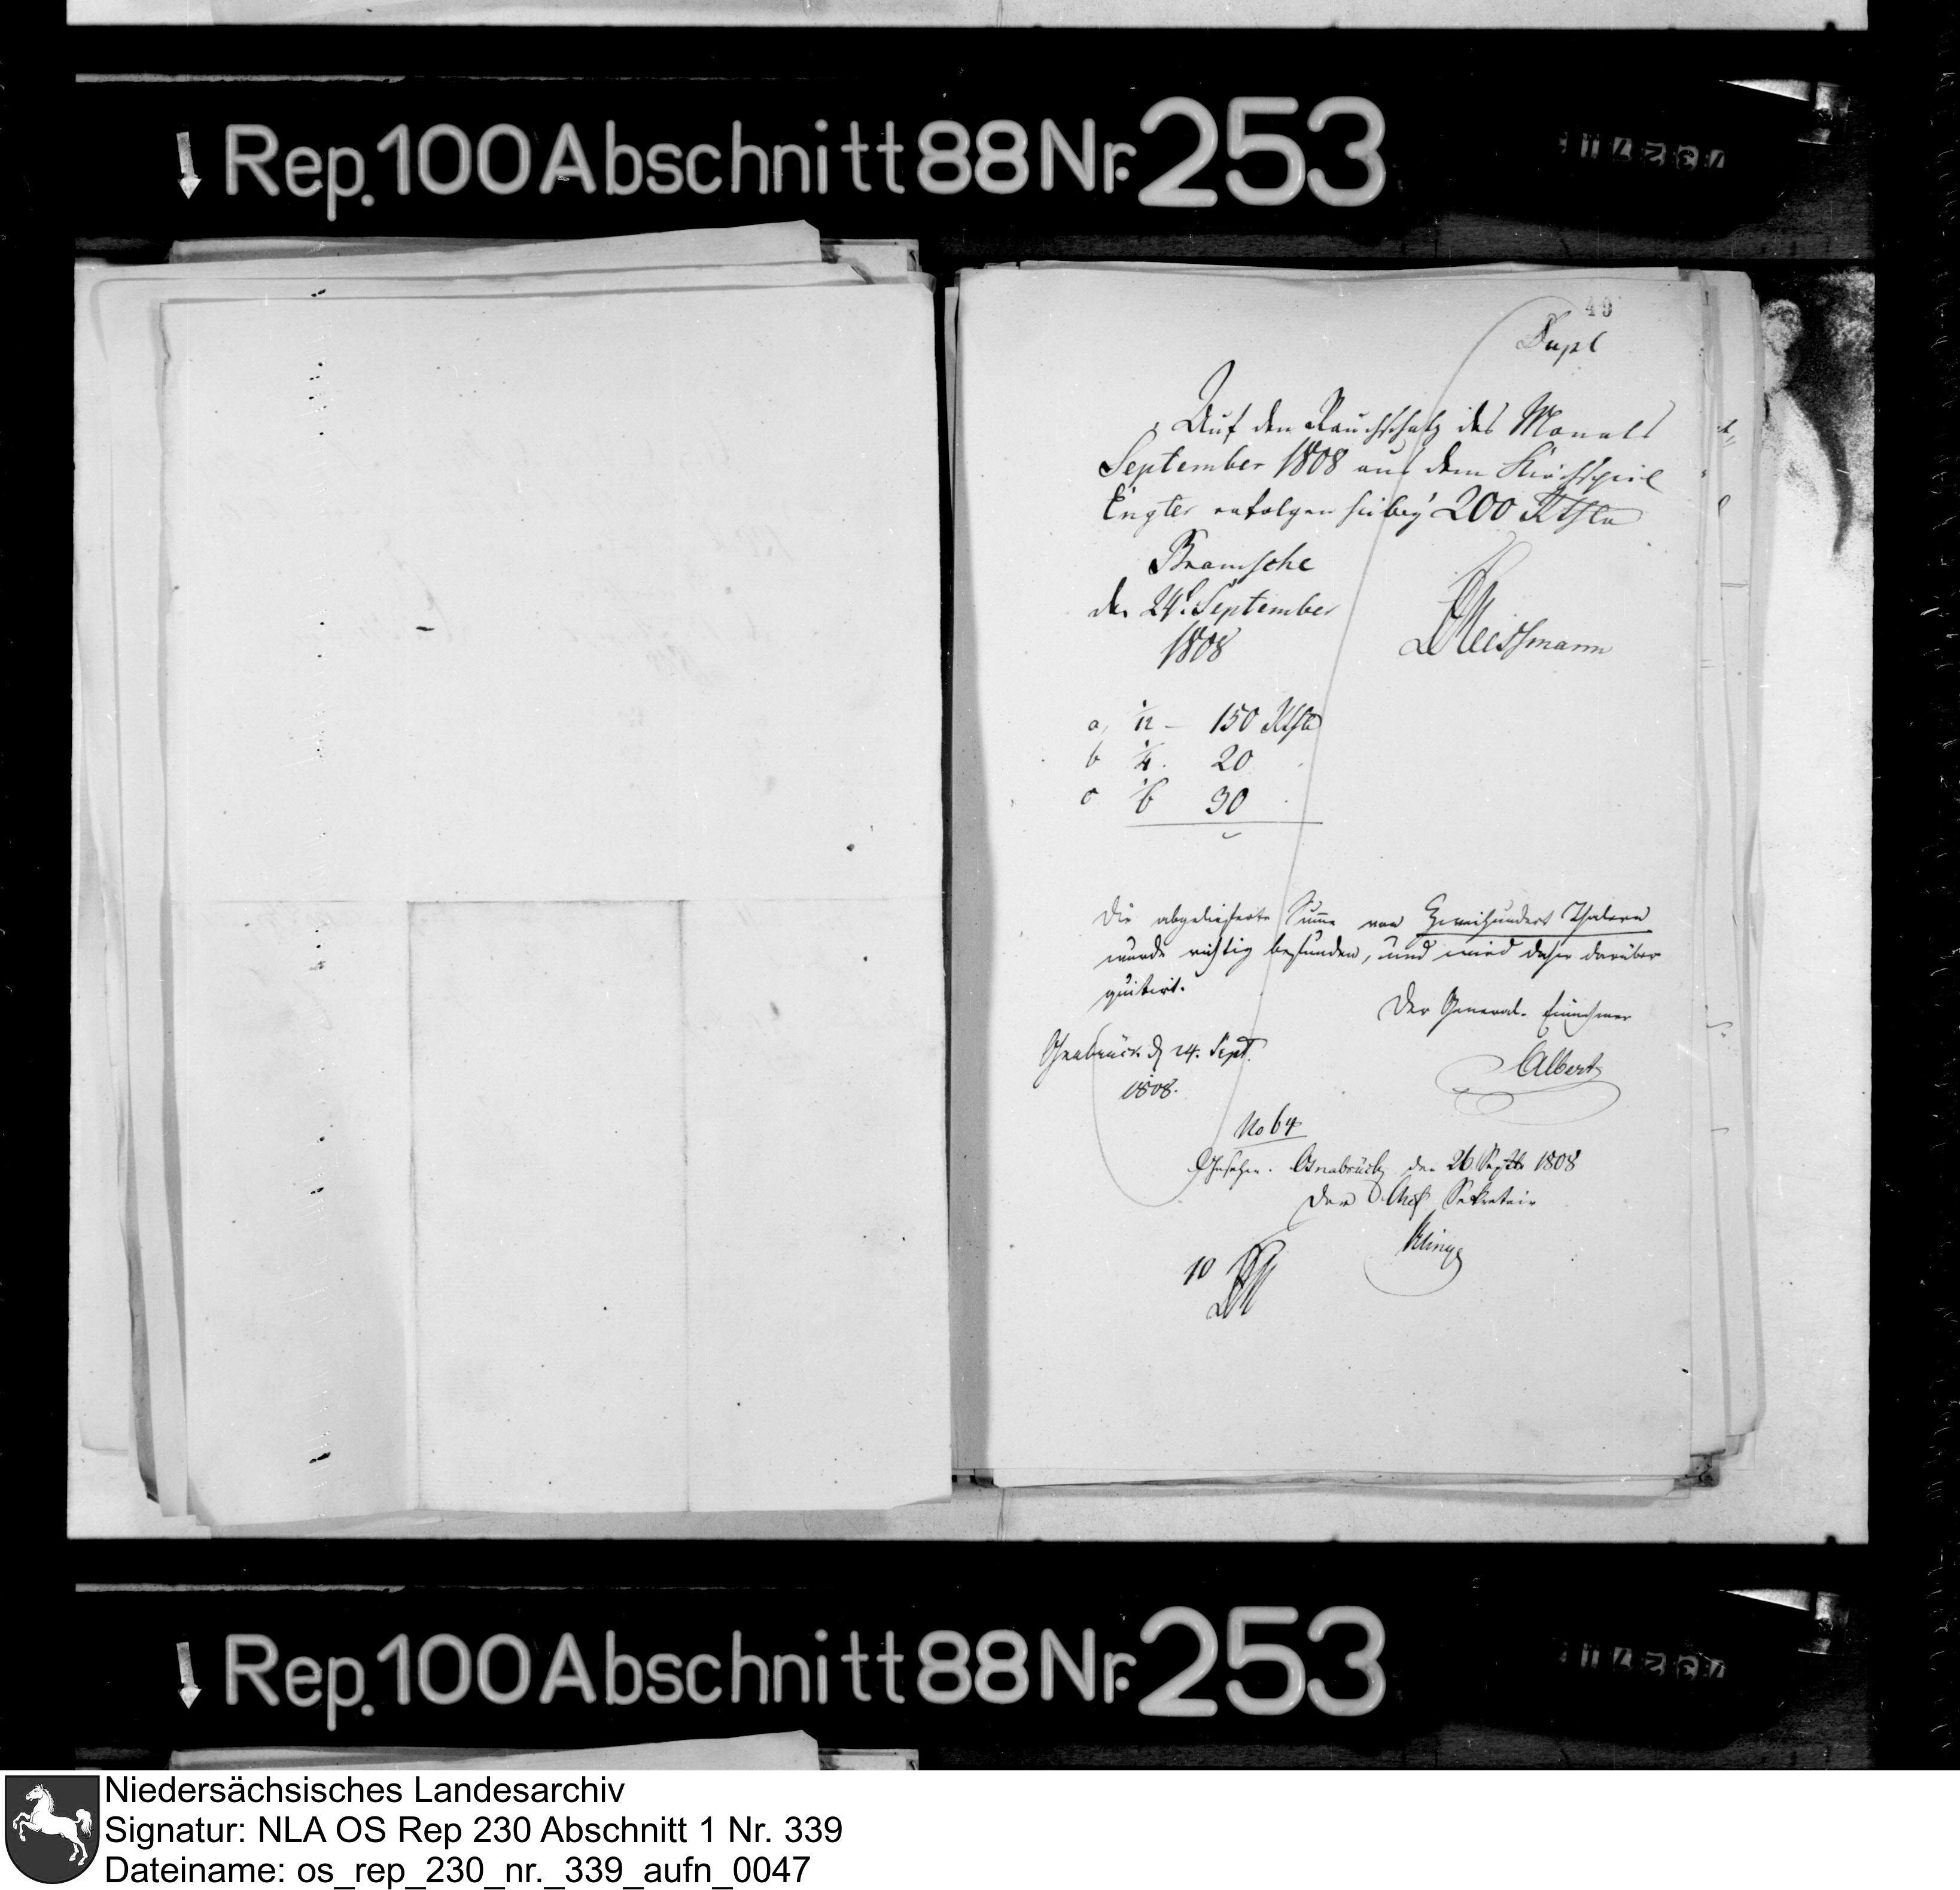 Rep. 100 Abschnitt 88 Nr. 253
49
Dupl
Auf den Rauchschatz des Monats
September 1808 aus dem Kirchspiel
Engter erfolgen hiebey 200 Rthlr
Bramsche
den 24t. September
1808
a, 1/12 – 150 Rthlr
b 1/4. 20
c 1/6 30
Die abgelieferte Summe von Zweihundert Thalern
wurde richtig befunden, und wird daher darüber
quitirt.
Der General-Einnehmer
Osnabrück d 24. Sept.
1808.
Albert
No 64
Gesehen. Osnabrück den 26 Septb 1808
Der Chef Sekretair
Klinge
10
Rep. 100 Abschnitt 88 Nr. 253
Niedersächsisches Landesarchiv
Signatur: NLA OS Rep 230 Abschnitt 1 Nr. 339
Dateiname: os_rep_230_nr._339_aufn_0047